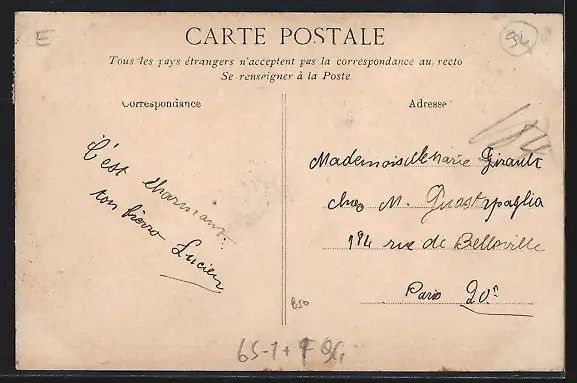 E
94
CARTE POSTALE
Tous les pays étrangers n'acceptent pas la correspondance au recto
Se renseigner à la Poste
Correspondance
Adresse
C'est charmant
ton
Lucien
Mademoiselle Marie Girault
chez M.
184 rue de Belleville
Paris 20e
850
65-1+F 94